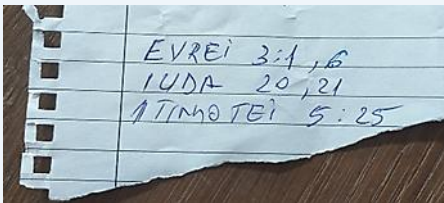 EVREI 3:1, 6
IUDA 20, 21
1 TIMOTEI 5:25